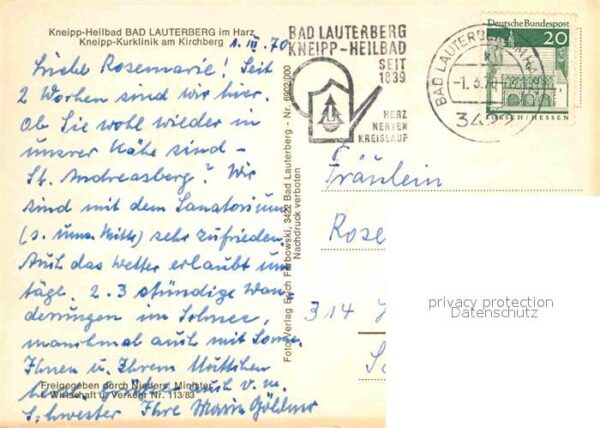 Kneipp-Heilbad BAD LAUTERBERG im Harz
Kneipp-Kurklinik am Kirchberg
1. III. 70
Liebe Rosemarie! Seit
2 Wochen sind wir hier.
Ob Sie wohl wieder in
unserer Nähe sind –
St. Andreasberg? Wir
sind mit dem Sanatorium
(s. Mitte) sehr zufrieden.
Auch das Wetter erlaubt uns
täge. 2-3 stündige Wan
derungen im Schnee,
manchmal auch mit Sonne.
Ihnen u. Ihrem Muttchen
auch v. m.
Schwester Ihre Maria Göldner
Freigegeben durch Nieders. Minister
f. Wirtschaft u. Verkehr Nr. 113/83
Foto-Verlag Erich Farbowski, 3422 Bad Lauterberg - Nr. 6902 000
Nachdruck verboten
BAD LAUTERBERG
KNEIPP-HEILBAD
SEIT
1839
HERZ
NERVEN
KREISLAUF
BAD LAUTERB
-1.3.70
3422
Deutsche Bundespost
20
LORSCH/HESSEN
Fräulein
Rose
314
privacy protection
Datenschutz